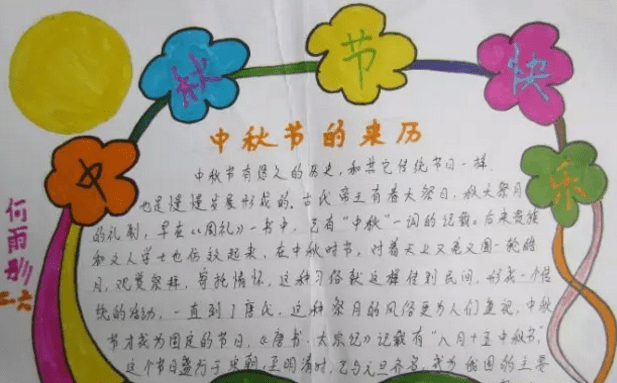 中秋节快乐
中秋节的来历
何雨彤
二六
中秋节有悠久的历史，和其它传统节日一样，
也是慢慢发展形成的，古代帝王有春天祭日，秋天祭月
的礼制，早在《周礼》一书中，已有“中秋”一词的记载。后来贵族
和文人学士也仿效起来，在中秋时节，对着天上又亮又圆一轮皓
月，观赏祭拜，寄托情怀，这种习俗就这样传到民间，形成一个传
统的活动，一直到了唐代，这种祭月的风俗更为人们重视，中秋
节才成为固定的节日，《唐书·太宗记》记载有“八月十五中秋节”，
这个节日盛行于宋朝，至明清时，已与元旦齐名，成为我国的主要